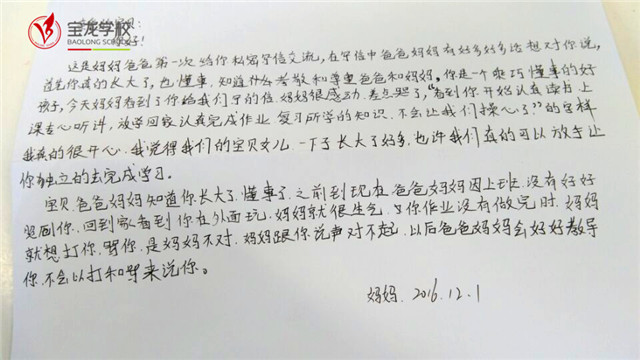 宝龙学校
BAOLONG SCHOOL
宝贝:
好!
这是妈妈爸爸第一次给你写信交流,在字信中爸爸妈妈有好多好多话想对你说,
首先你真的长大了,也懂事,知道什么孝敬和尊重爸爸和妈妈,你是一个乖巧懂事的好
孩子,今天妈妈看到了你给我们写的信,妈妈很感动,差点哭了,"看到你开始认真读书上
课专心听讲,放学回家认真完成作业 复习所学的知识.不会让我们操心了?"的字样
我真的很开心.我觉得我们的宝贝女儿一下了长大了好多,也许我们真的可以放手让
你独立的去完成学习。
宝贝,爸爸妈妈知道你长大了.懂事了.之前到现在爸爸妈妈因上班.没有好好
照顾你,回到家看到你在外面玩.妈妈就很生气.当你作业没有做完时.妈妈
就想打你.骂你.是妈妈不对.妈妈跟你说声对不起.以后爸爸妈妈会好好教导
你.不会以打和骂来说你。
妈妈.2016.12.1